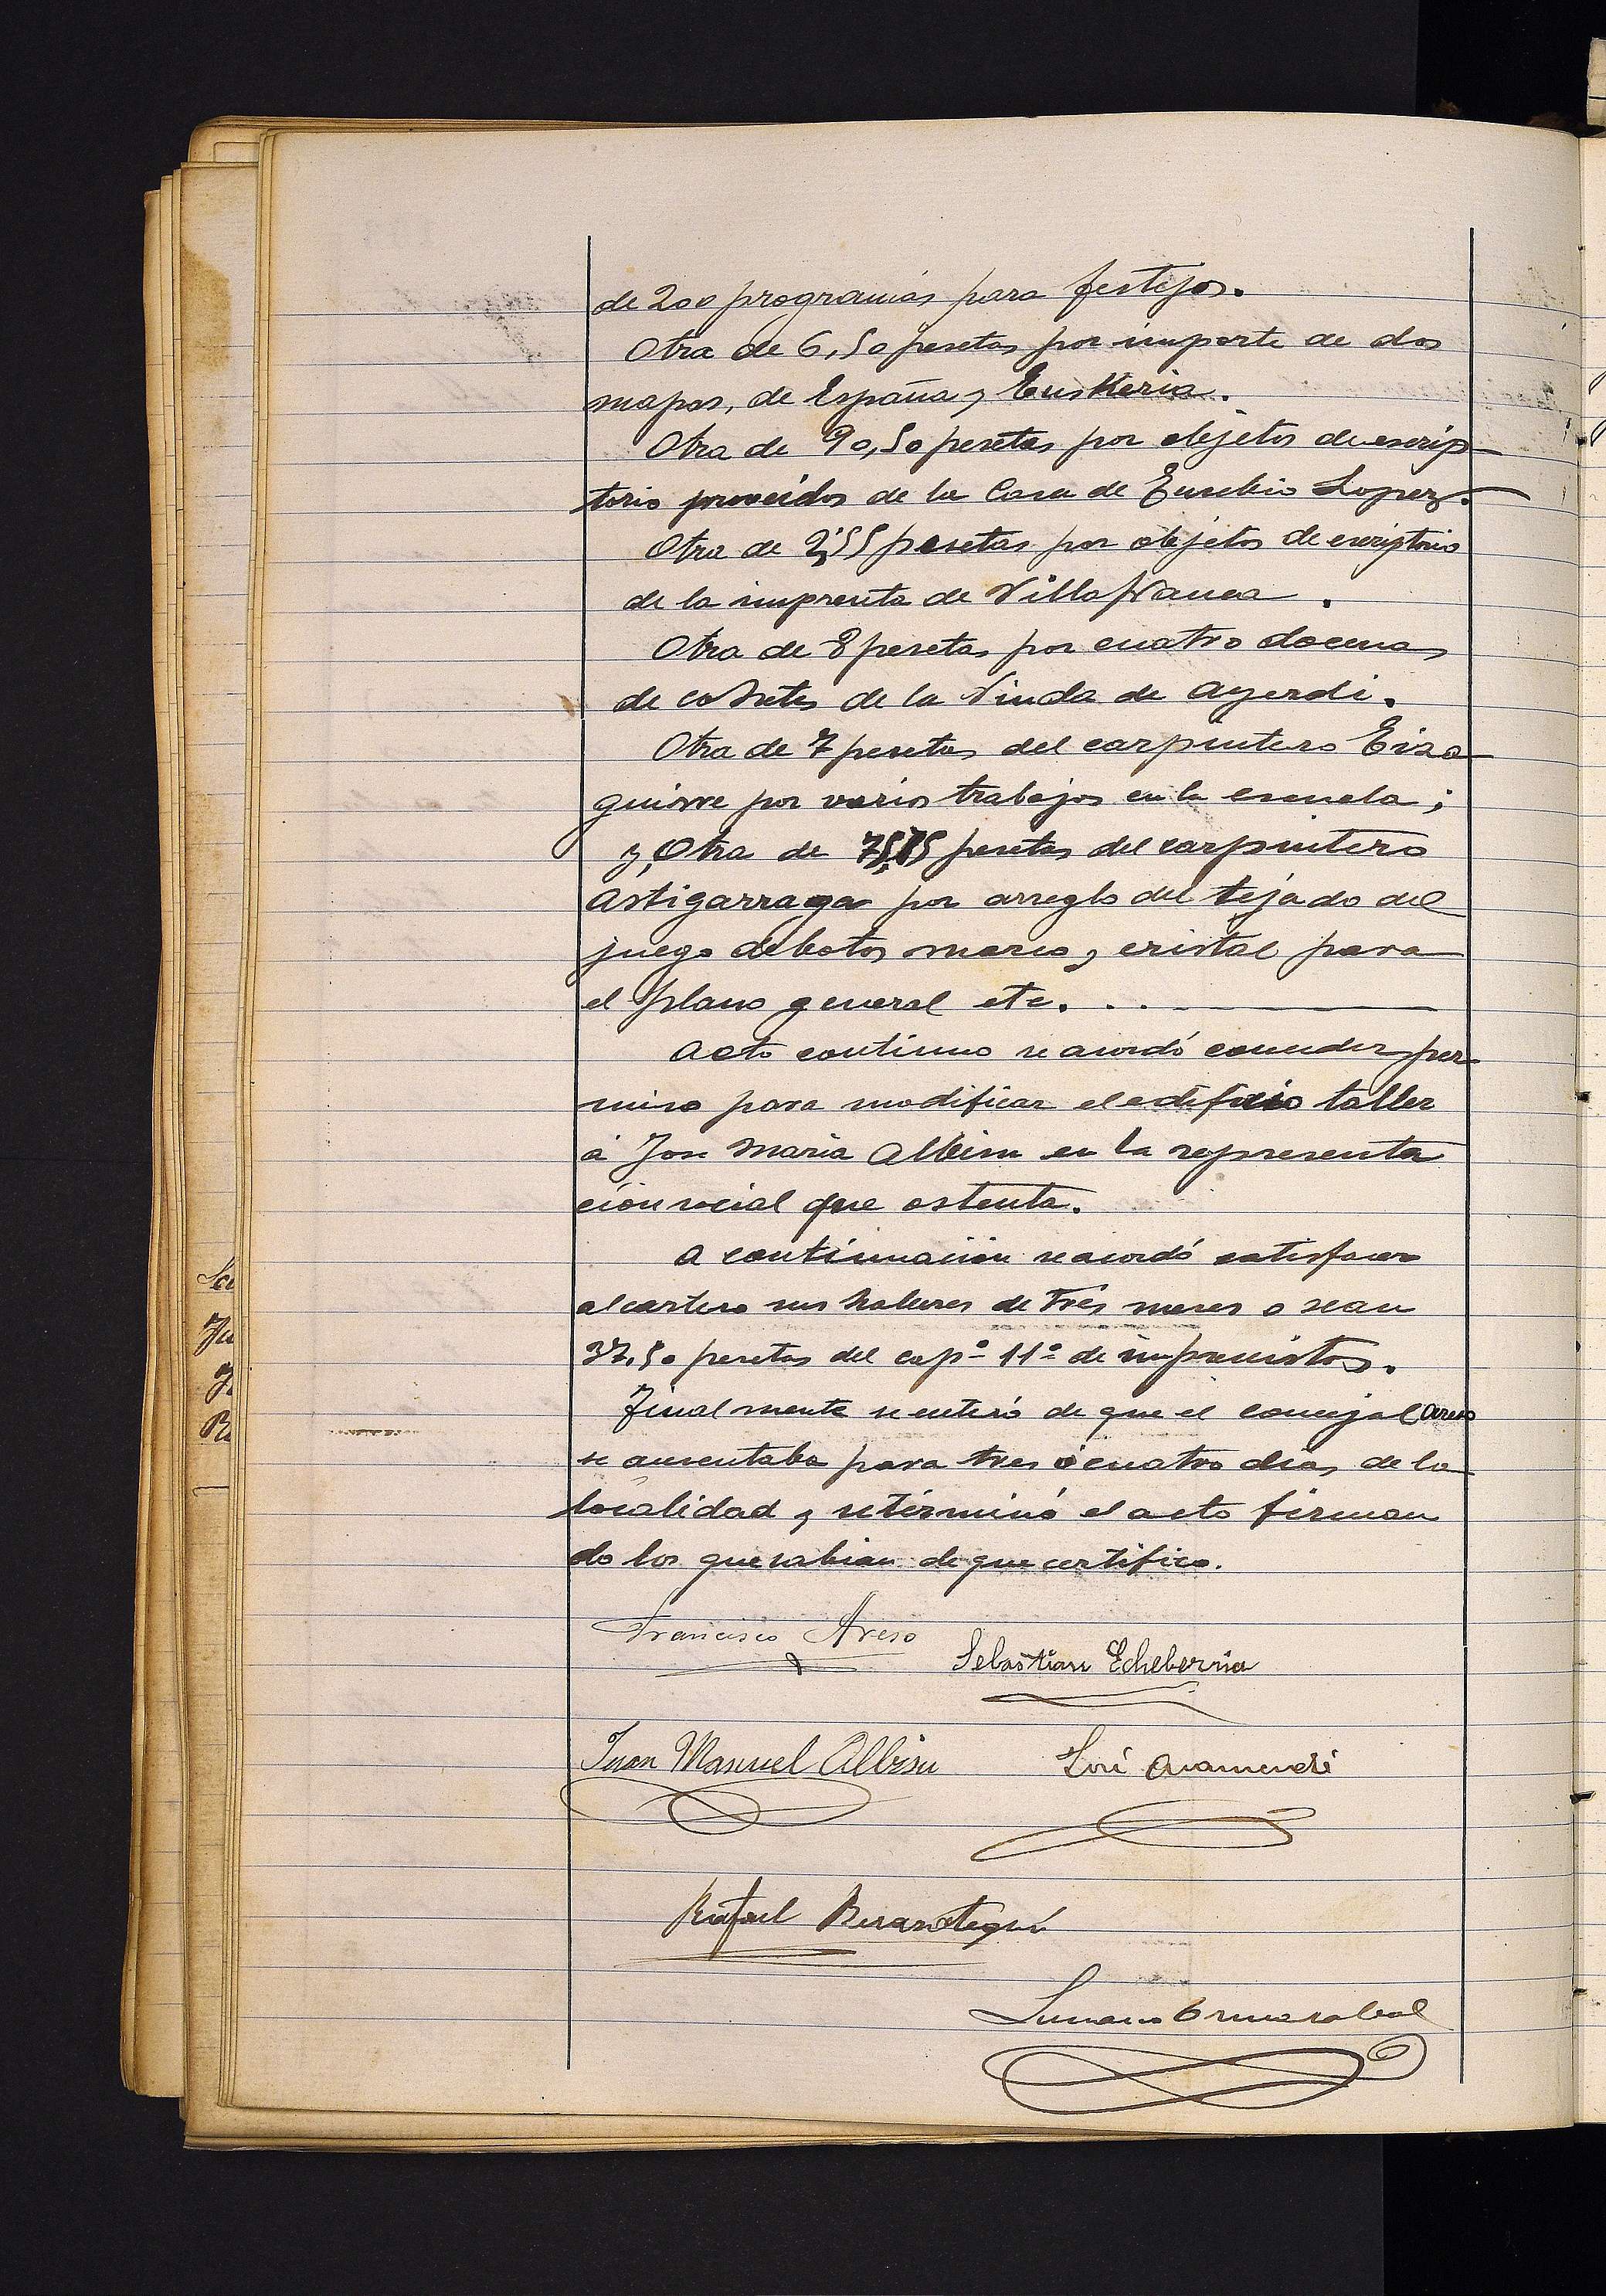 de 200 programas para festejos.
Otra de 6,50 pesetas por importe de dos
mapas, de España y Euskeria.
Otra de 90,50 pesetas por objetos de escrip-
torio proveidos de la Casa de Eusebio Lopez.
Otra de 2,55 pesetas por objetos de escriptorio
de la imprenta de Villafranca.
Otra de 8 pesetas por cuatro docenas
de cohetes de la Viuda de Ayerdi.
Otra de 7 pesetas del carpintero Eiza-
guirre por varios trabajos en la escuela;
y, Otra de pesetas del carpintero
Astigarraga por arreglo del tejado del
juego de botos marco y cristal para
el plano general etc. . .
Acto continuo se acordó conceder per-
miso para modificar el edificio taller
á Jose Maria Albisu en la representa
cion social que ostenta.
A continuación se acordó satisfacer
al cartero sus haberes de tres meses o sean
37,50 pesetas del capº 11º de imprevistos.
Finalmente se enteró de que el concejal Areso
se ausentaba para tres ó cuatro dias de la
localidad y se términó el acto firman
do los que sabian de que certifico.
Francisco Areso
Sebastian Echeberria
Juan Manuel Albisu
José Aramendi
Rafael Berasategui
Luciano
Se
Ju
J
Ra